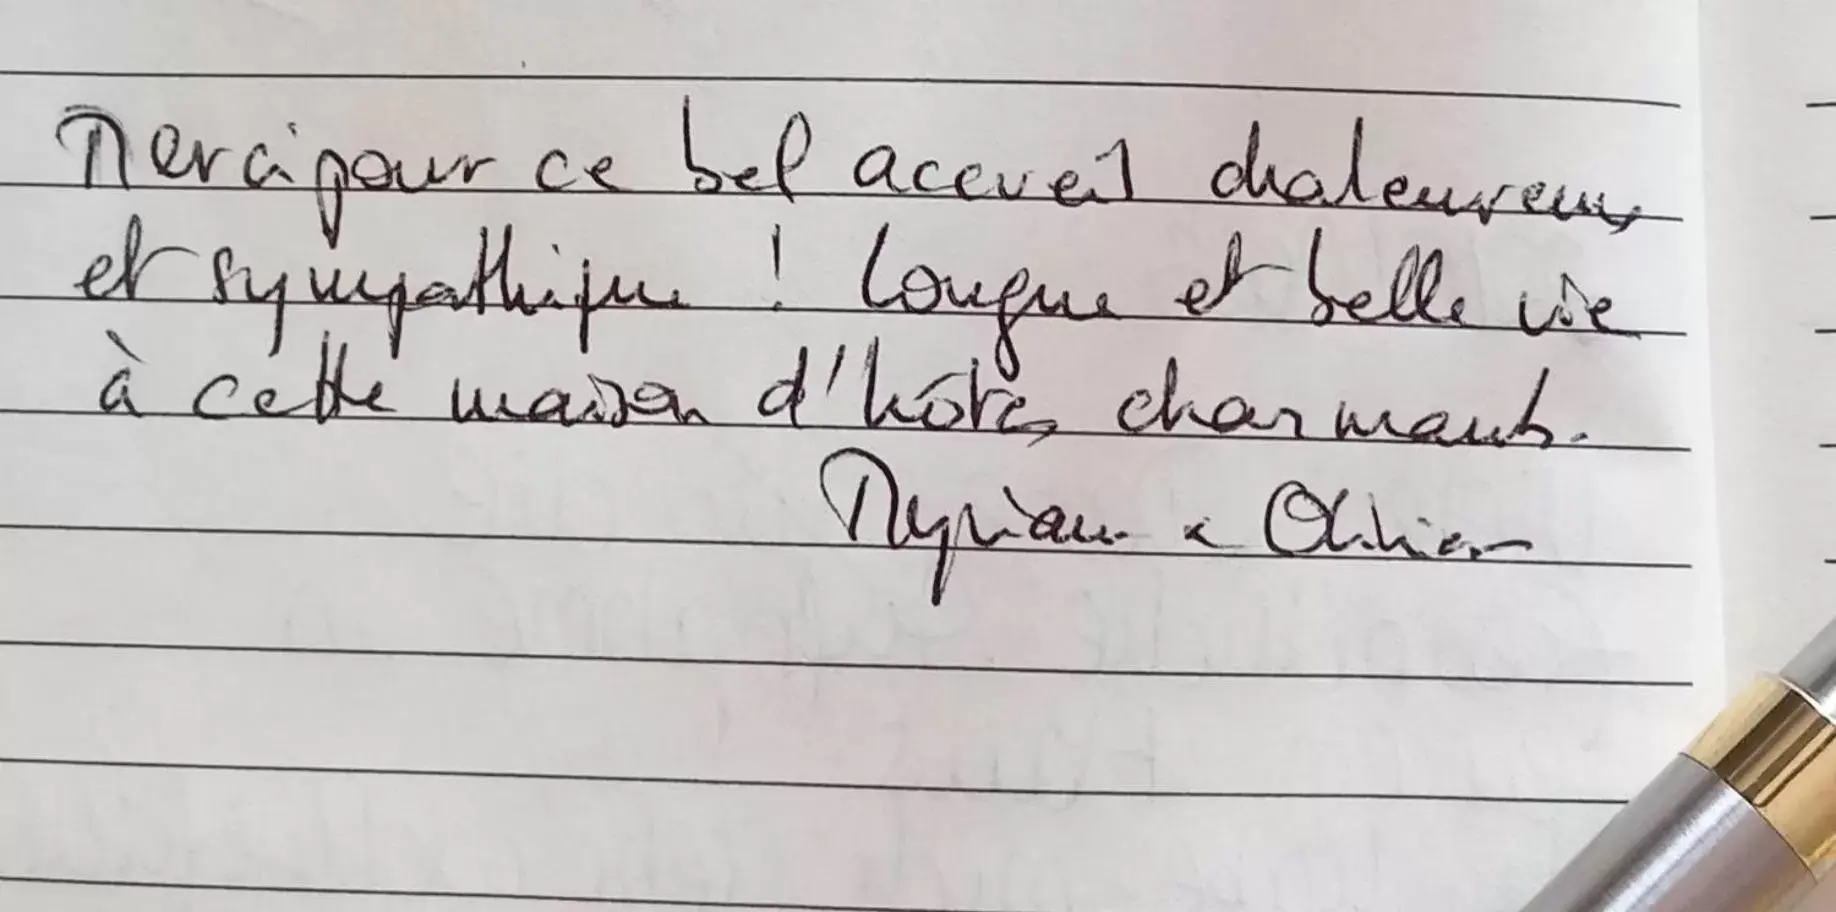 Merci pour ce bel accueil chaleureux
et sympathique ! Longue et belle vie
à cette maison d'hôtes charmants.
Myriam & Olivier